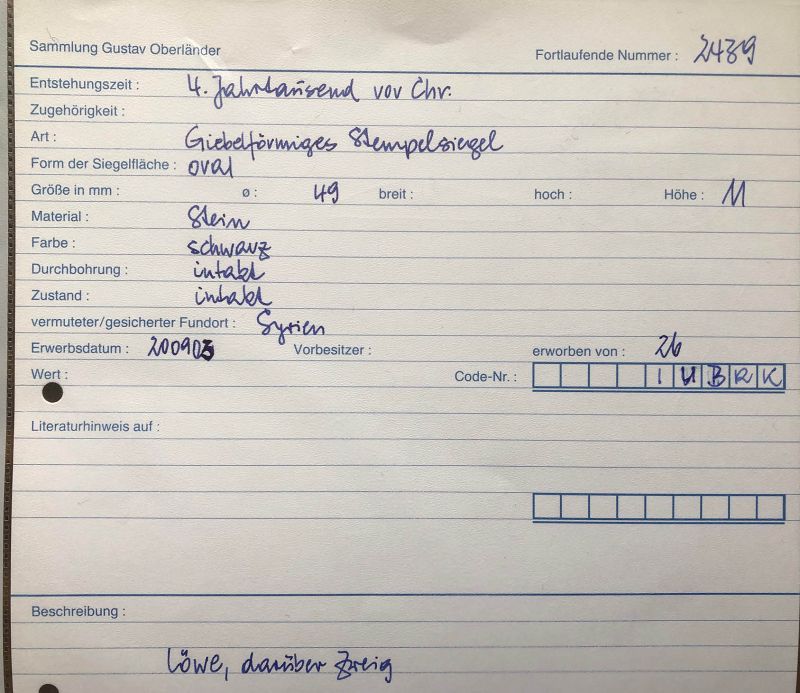 Sammlung Gustav Oberländer Fortlaufende Nummer : 2439
Entstehungszeit : 4. Jahrtausend vor Chr.
Zugehörigkeit :
Art : Giebelförmiges Stempelsiegel
Form der Siegelfläche : oval
Größe in mm : ø : 49 breit : hoch : Höhe : 11
Material : Stein
Farbe : schwarz
Durchbohrung : intakt
Zustand : intakt
vermuteter/gesicherter Fundort : Syrien
Erwerbsdatum : 200903 Vorbesitzer : erworben von : 26
Wert : Code-Nr. : I U B R K
Literaturhinweis auf :
Beschreibung :
Löwe, darüber Zweig